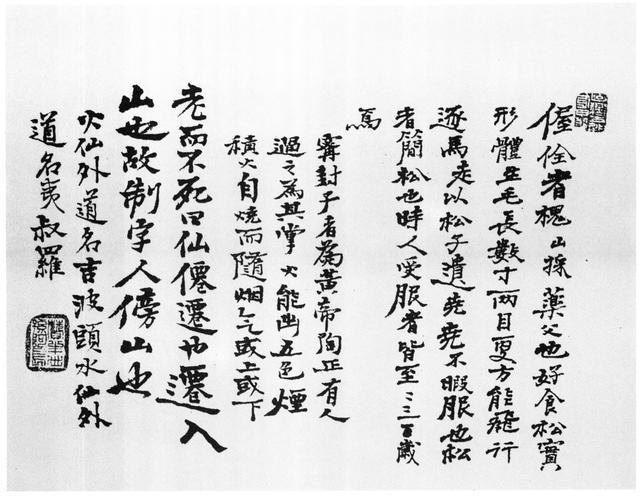 偓佺者槐山採藥父也好食松實
形體生毛長数寸兩目更方能飛行
逐馬走以松子遺尭尭不暇服也松
者簡松也時人受服者皆至二三百歳
焉
甯封子者為黄帝陶正有人
過之為其掌火能出五色煙
積火自燒而隨烟气或上或下
老而不死曰仙僊遷也遷入
山也故制字人傍山也
火仙外道名吉波頭水仙外
道名夷叔羅